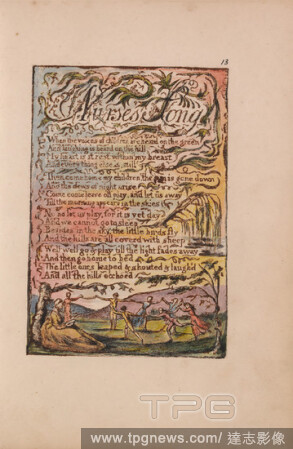 18
Nurse's Song
When the voices of children are heard on the green
And laughing is heard on the hill,
My heart is at rest within my breast
And every thing else is still
Then come home my children, the sun is gone down
And the dews of night arise
Come come leave off play, and let us away
Till the morning appears in the skies
No no let us play, for it is yet day
And we cannot go to sleep
Besides in the sky, the little birds fly
And the hills are all coverd with sheep
Well well go & play till the light fades away
And then go home to bed
The little ones leaped & shouted & laugh'd
And all the hills ecchoed
TPG
www.tpgnews.com／達志影像